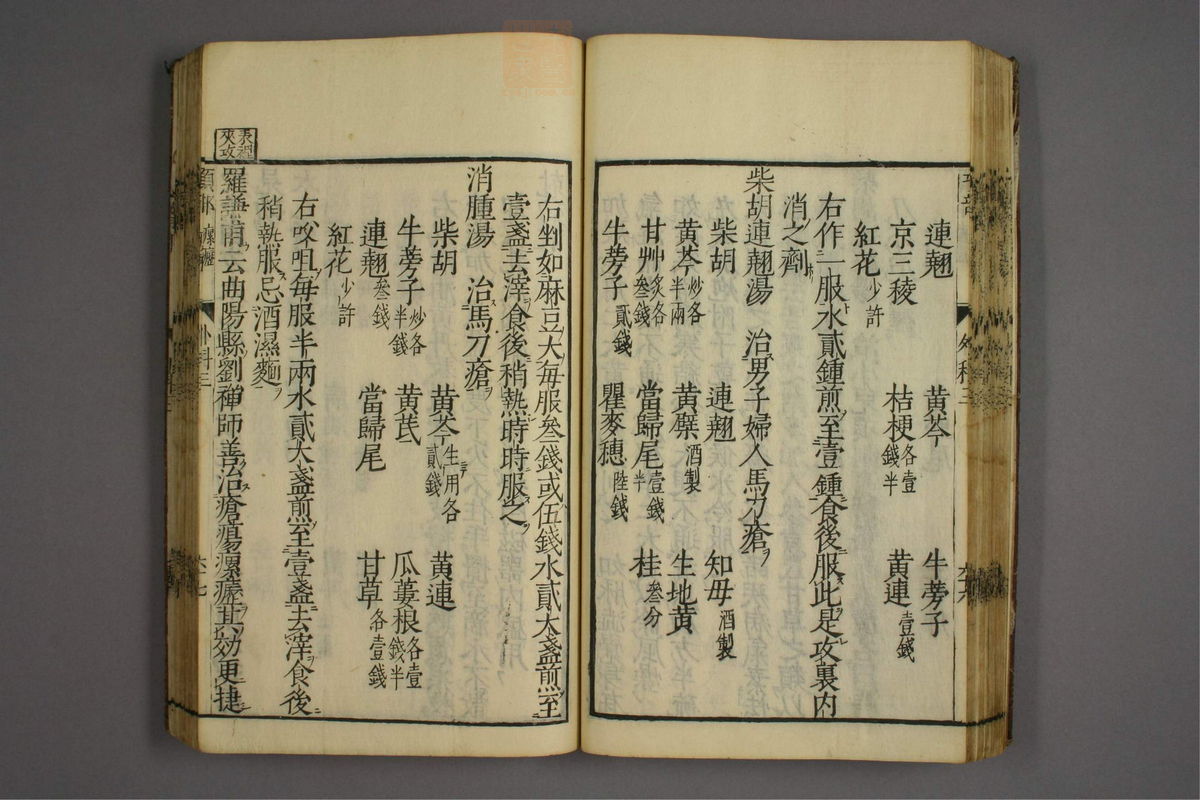 連翹 黄芩 牛蒡子
京三稜 桔梗各壹錢半 黄連壹錢
紅花少許
右作一服水貳鍾煎至壹鍾食後服此是攻裏内
消之劑
柴胡連翹湯 治男子婦人馬刀瘡
柴胡 連翹 知母酒製
黄芩炒各半兩 黄蘗酒製 生地黄
甘艸炙各叄錢 當歸尾壹錢半 桂叄分
牛蒡子貳錢 瞿麥穗陸錢
右剉如麻豆大每服叄錢或伍錢水貳大盞煎至
壹盞去滓食後稍熱時時服之
消腫湯 治馬刀瘡
柴胡 黄芩生用各貳錢 黄連
牛蒡子炒各半錢 黄芪 瓜蔞根各壹錢半
連翹叄錢 當歸尾 甘草各壹錢
紅花少許
右㕮咀每服半兩水貳大盞煎至壹盞去滓食後
稍執服忌酒濕麵
表裡夾攻
羅謙甫云曲陽縣劉禅師善治瘡瘍瘰癧其効更捷